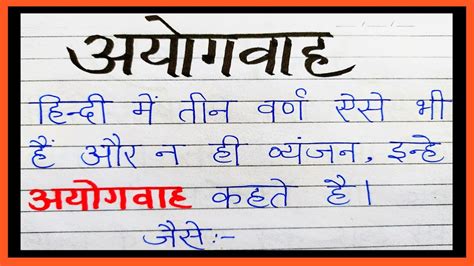 अयोगवाह
हिन्दी में तीन वर्ण ऐसे भी
हैं और न ही व्यंजन, इन्हे
अयोगवाह कहते है।
जैसे:-